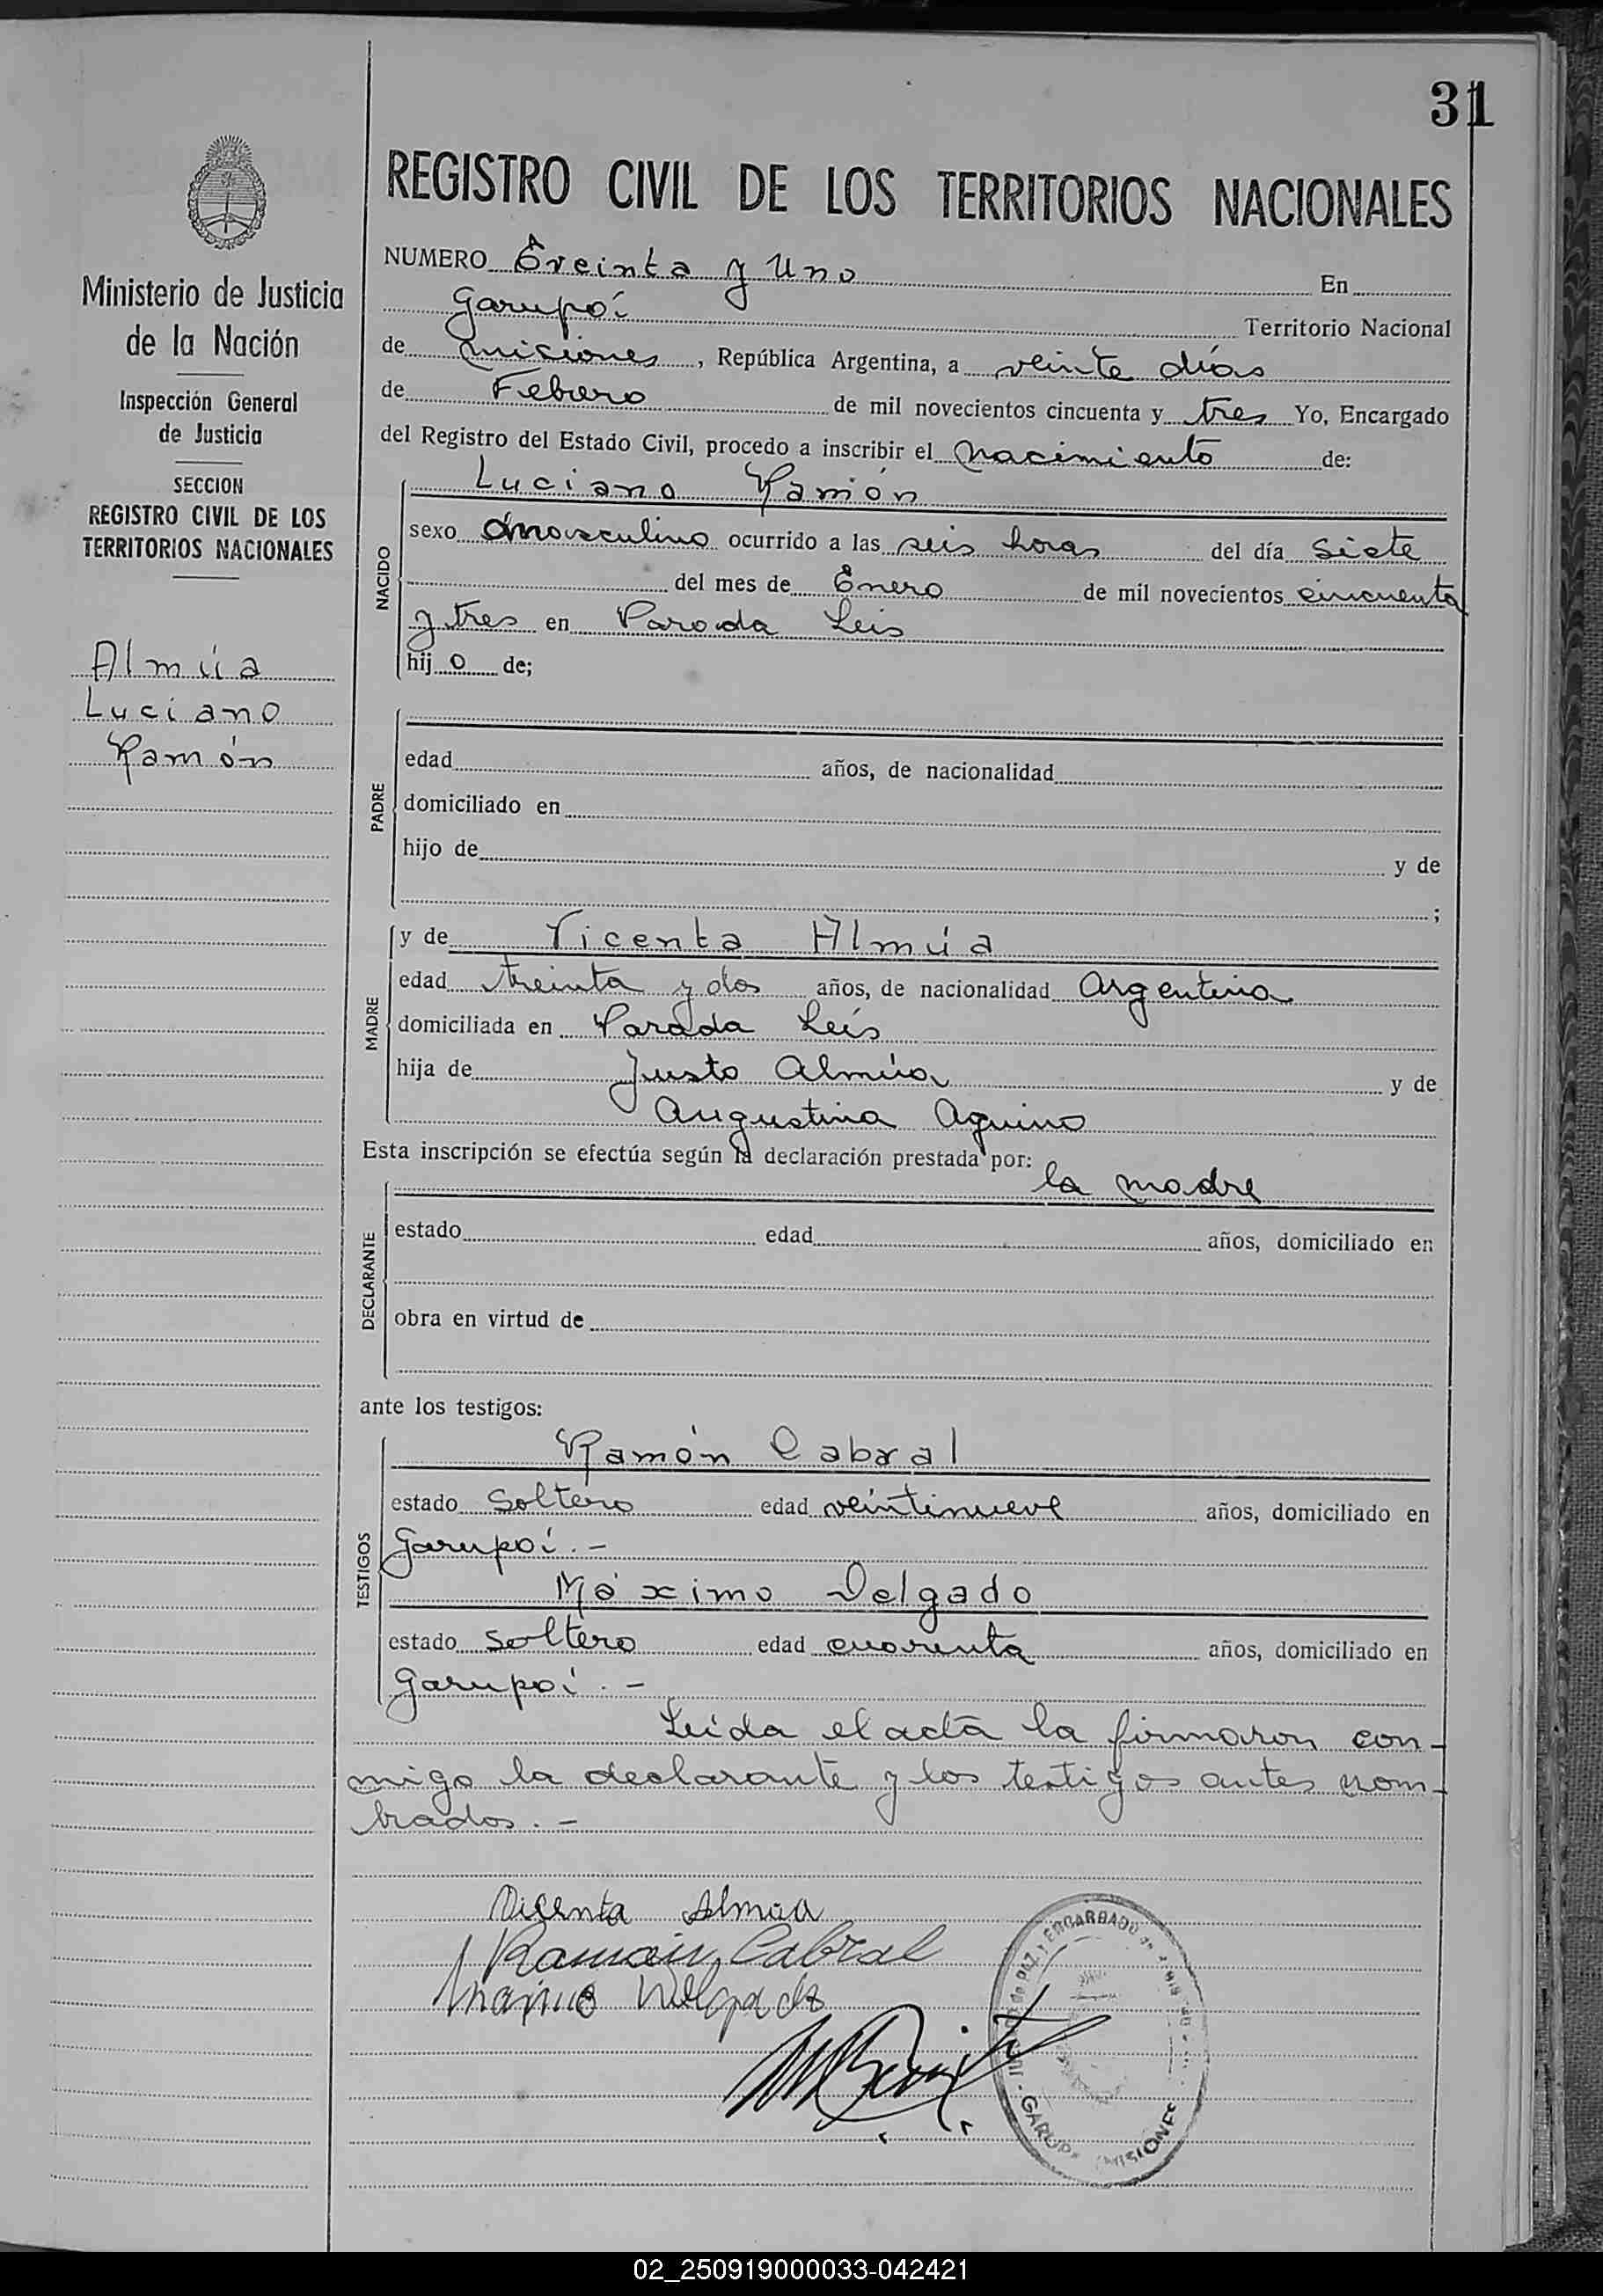 31
REGISTRO CIVIL DE LOS TERRITORIOS NACIONALES
Ministerio de Justicia
de la Nación
Inspección General
de Justicia
SECCION
REGISTRO CIVIL DE LOS
TERRITORIOS NACIONALES
Almúa
Luciano
Ramón
NUMERO Treinta y Uno En
Garupá
Territorio Nacional
de Misiones, República Argentina, a veinte días
de Febrero de mil novecientos cincuenta y tres Yo, Encargado
del Registro del Estado Civil, procedo a inscribir el nacimiento de:
NACIDO
Luciano Ramón
sexo masculino ocurrido a las seis horas del día siete
del mes de Enero de mil novecientos cincuenta
y tres en Parada Leis
hijo de;
PADRE
edad años, de nacionalidad
domiciliado en
hijo de y de
;
MADRE
y de Vicenta Almúa
edad treinta y dos años, de nacionalidad Argentina
domiciliada en Parada Leis
hija de Justo Almúa y de
Augustina Aquino
Esta inscripción se efectúa según la declaración prestada por:
la madre
DECLARANTE
estado edad años, domiciliado en
obra en virtud de
ante los testigos:
TESTIGOS
Ramón Cabral
estado soltero edad veintinueve años, domiciliado en
Garupá.-
Máximo Delgado
estado soltero edad cuarenta años, domiciliado en
Garupá.-
Leída el acta la firmaron con-
migo la declarante y los testigos antes nom-
brados.-
Vicenta Almua
Ramón Cabral
Maximo Delgado
DE PAZ Y ENCARGADO
GARUPA MISIONES
02_250919000033-042421